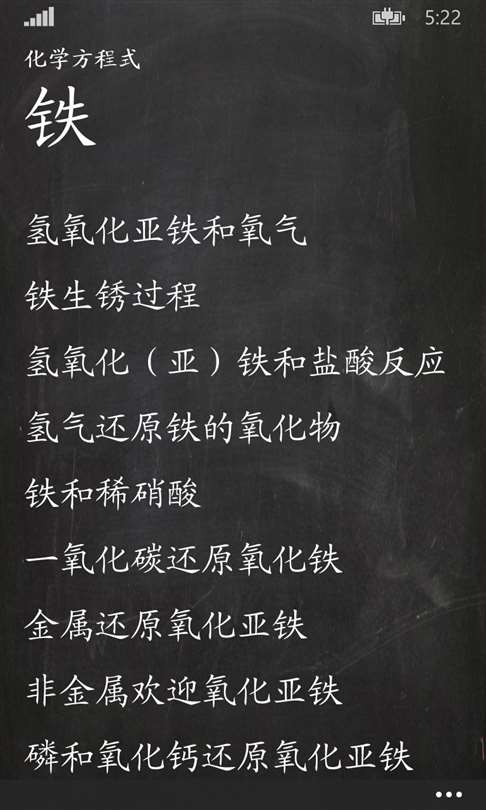 5:22
化学方程式
铁
氢氧化亚铁和氧气
铁生锈过程
氢氧化（亚）铁和盐酸反应
氢气还原铁的氧化物
铁和稀硝酸
一氧化碳还原氧化铁
金属还原氧化亚铁
非金属欢迎氧化亚铁
磷和氧化钙还原氧化亚铁